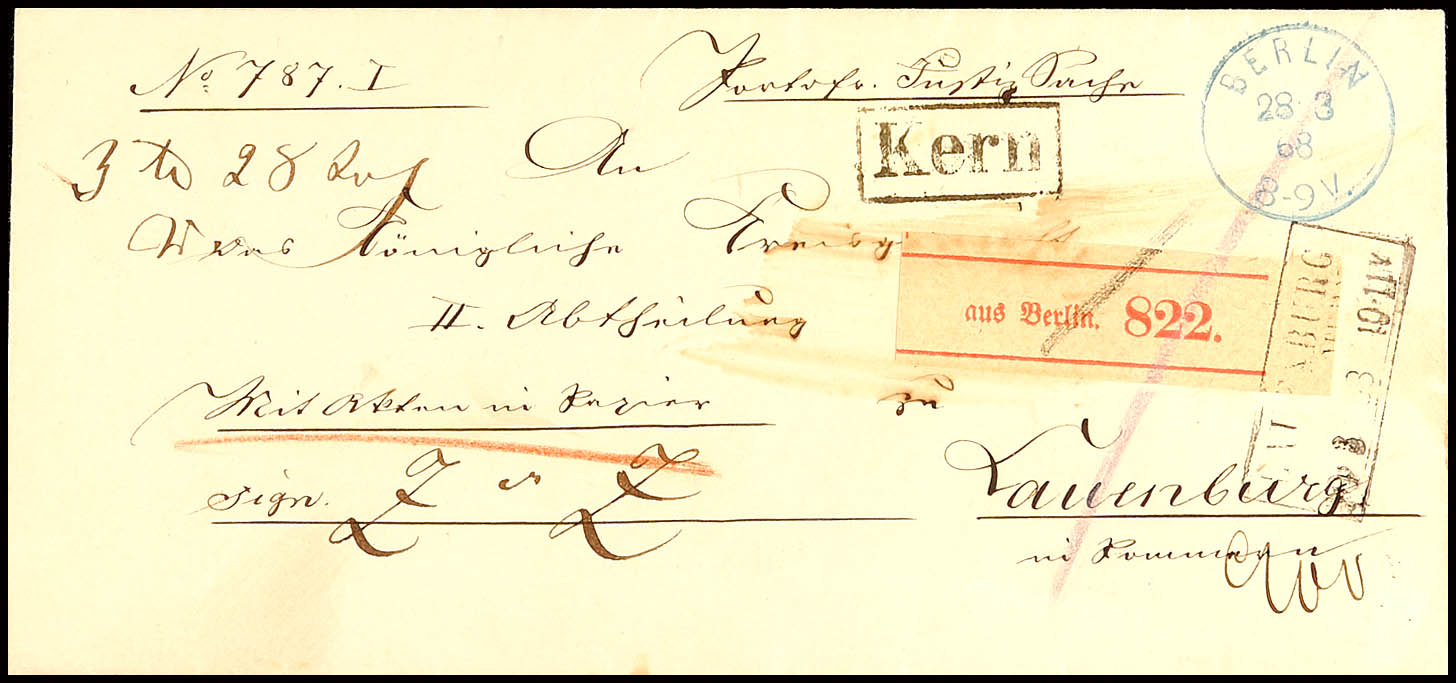 No 787. I
Portofr. Justiz Sache
BERLIN
28 3
68
8-9 V.
Kern
3 tb 28
An
das Königliche Kreisg
II. Abtheilung
aus Berlin. 822.
10-11 V
Mit Akten in Papier
zu
sign. Z Z
Lauenburg
in Pommern